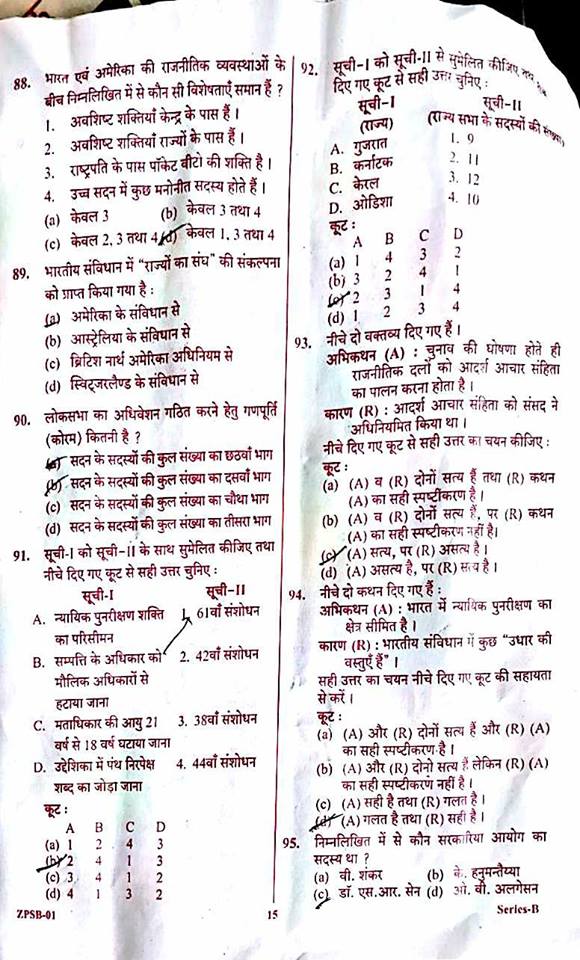 88. भारत एवं अमेरिका की राजनीतिक व्यवस्थाओं के
बीच निम्नलिखित में से कौन सी विशेषताएँ समान हैं ?
1. अवशिष्ट शक्तियाँ केन्द्र के पास हैं ।
2. अवशिष्ट शक्तियाँ राज्यों के पास हैं ।
3. राष्ट्रपति के पास पॉकेट वीटो की शक्ति है ।
4. उच्च सदन में कुछ मनोनीत सदस्य होते हैं ।
(a) केवल 3 (b) केवल 3 तथा 4
(c) केवल 2, 3 तथा 4 (d) केवल 1, 3 तथा 4
89. भारतीय संविधान में "राज्यों का संघ" की संकल्पना
को प्राप्त किया गया है :
(a) अमेरिका के संविधान से
(b) आस्ट्रेलिया के संविधान से
(c) ब्रिटिश नार्थ अमेरिका अधिनियम से
(d) स्विट्जरलैण्ड के संविधान से
90. लोकसभा का अधिवेशन गठित करने हेतु गणपूर्ति
(कोरम) कितनी है ?
(a) सदन के सदस्यों की कुल संख्या का छठवाँ भाग
(b) सदन के सदस्यों की कुल संख्या का दसवाँ भाग
(c) सदन के सदस्यों की कुल संख्या का चौथा भाग
(d) सदन के सदस्यों की कुल संख्या का तीसरा भाग
91. सूची-I को सूची-II के साथ सुमेलित कीजिए तथा
नीचे दिए गए कूट से सही उत्तर चुनिए :
सूची-I सूची-II
A. न्यायिक पुनरीक्षण शक्ति 1. 61वाँ संशोधन
का परिसीमन
B. सम्पत्ति के अधिकार को 2. 42वाँ संशोधन
मौलिक अधिकारों से
हटाया जाना
C. मताधिकार की आयु 21 3. 38वाँ संशोधन
वर्ष से 18 वर्ष घटाया जाना
D. उद्देशिका में पंथ निरपेक्ष 4. 44वाँ संशोधन
शब्द का जोड़ा जाना
कूट :
A B C D
(a) 1 2 4 3
(b) 2 4 1 3
(c) 3 4 1 2
(d) 4 1 3 2
92. सूची-I को सूची-II से सुमेलित कीजिए तथा
दिए गए कूट से सही उत्तर चुनिए :
सूची-I सूची-II
(राज्य) (राज्य सभा के सदस्यों की संख्या)
A. गुजरात 1. 9
B. कर्नाटक 2. 11
C. केरल 3. 12
D. ओडिशा 4. 10
कूट :
A B C D
(a) 1 4 3 2
(b) 3 2 4 1
(c) 2 3 1 4
(d) 1 2 3 4
93. नीचे दो वक्तव्य दिए गए हैं ।
अभिकथन (A) : चुनाव की घोषणा होते ही
राजनीतिक दलों को आदर्श आचार संहिता
का पालन करना होता है ।
कारण (R) : आदर्श आचार संहिता को संसद ने
अधिनियमित किया था ।
नीचे दिए गए कूट से सही उत्तर का चयन कीजिए :
कूट :
(a) (A) व (R) दोनों सत्य हैं तथा (R) कथन
(A) का सही स्पष्टीकरण है ।
(b) (A) व (R) दोनों सत्य हैं, पर (R) कथन
(A) का सही स्पष्टीकरण नहीं है।
(c) (A) सत्य, पर (R) असत्य है ।
(d) (A) असत्य है, पर (R) सत्य है ।
94. नीचे दो कथन दिए गए हैं :
अभिकथन (A) : भारत में न्यायिक पुनरीक्षण का
क्षेत्र सीमित है ।
कारण (R) : भारतीय संविधान में कुछ "उधार की
वस्तुएँ हैं" ।
सही उत्तर का चयन नीचे दिए गए कूट की सहायता
से करें ।
कूट :
(a) (A) और (R) दोनों सत्य हैं और (R) (A)
का सही स्पष्टीकरण है ।
(b) (A) और (R) दोनो सत्य हैं लेकिन (R) (A)
का सही स्पष्टीकरण नहीं है ।
(c) (A) सही है तथा (R) गलत है ।
(d) (A) गलत है तथा (R) सही है ।
95. निम्नलिखित में से कौन सरकारिया आयोग का
सदस्य था ?
(a) वी. शंकर (b) के. हनुमन्तैय्या
(c) डॉ. एस.आर. सेन (d) ओ. वी. अलगेसन
ZPSB-01 15 Series-B